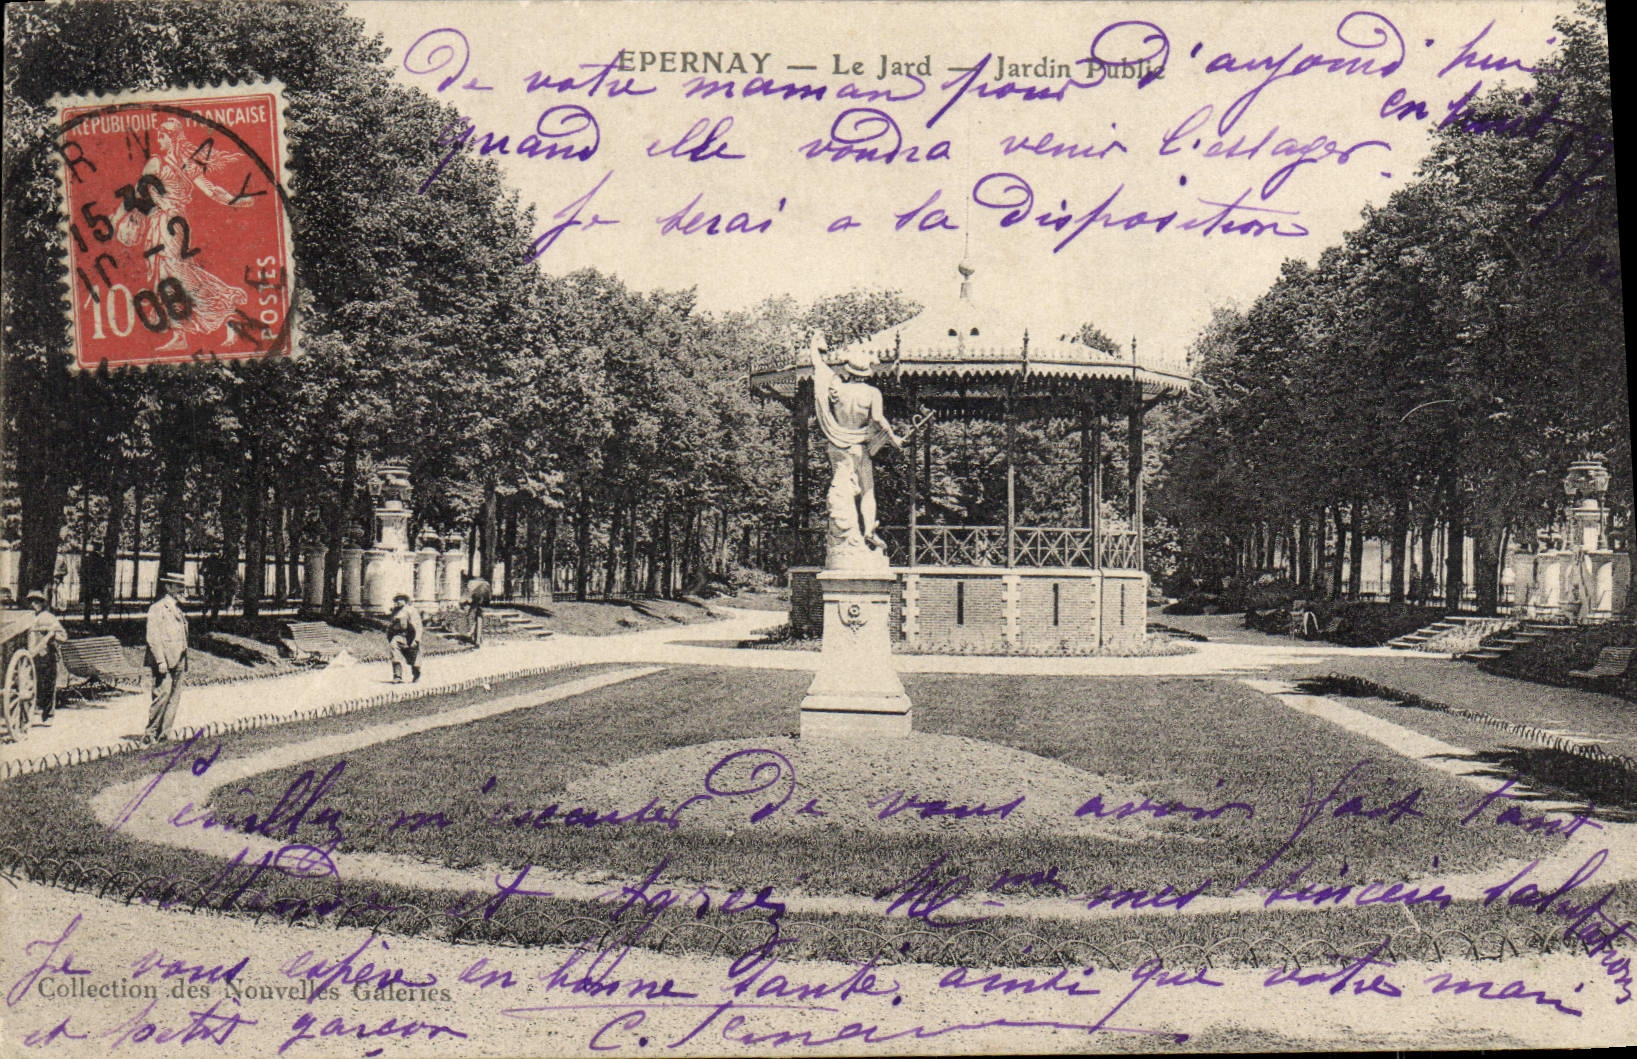 EPERNAY — Le Jard — Jardin Public
De votre maman pour D'aujourd'hui
en huit
quand elle voudra venir l'essayer
Je serai a sa Disposition
RÉPUBLIQUE FRANÇAISE
10
POSTES
RNAY
15 30
10 -2
08
NE
Veuillez m'excuser De vous avoir fait tant
attendre et agreez Mme mes sinceres salutations
Je vous espère en bonne santé, ainsi que votre mari
Collection des Nouvelles Galeries
et petit garçon C.